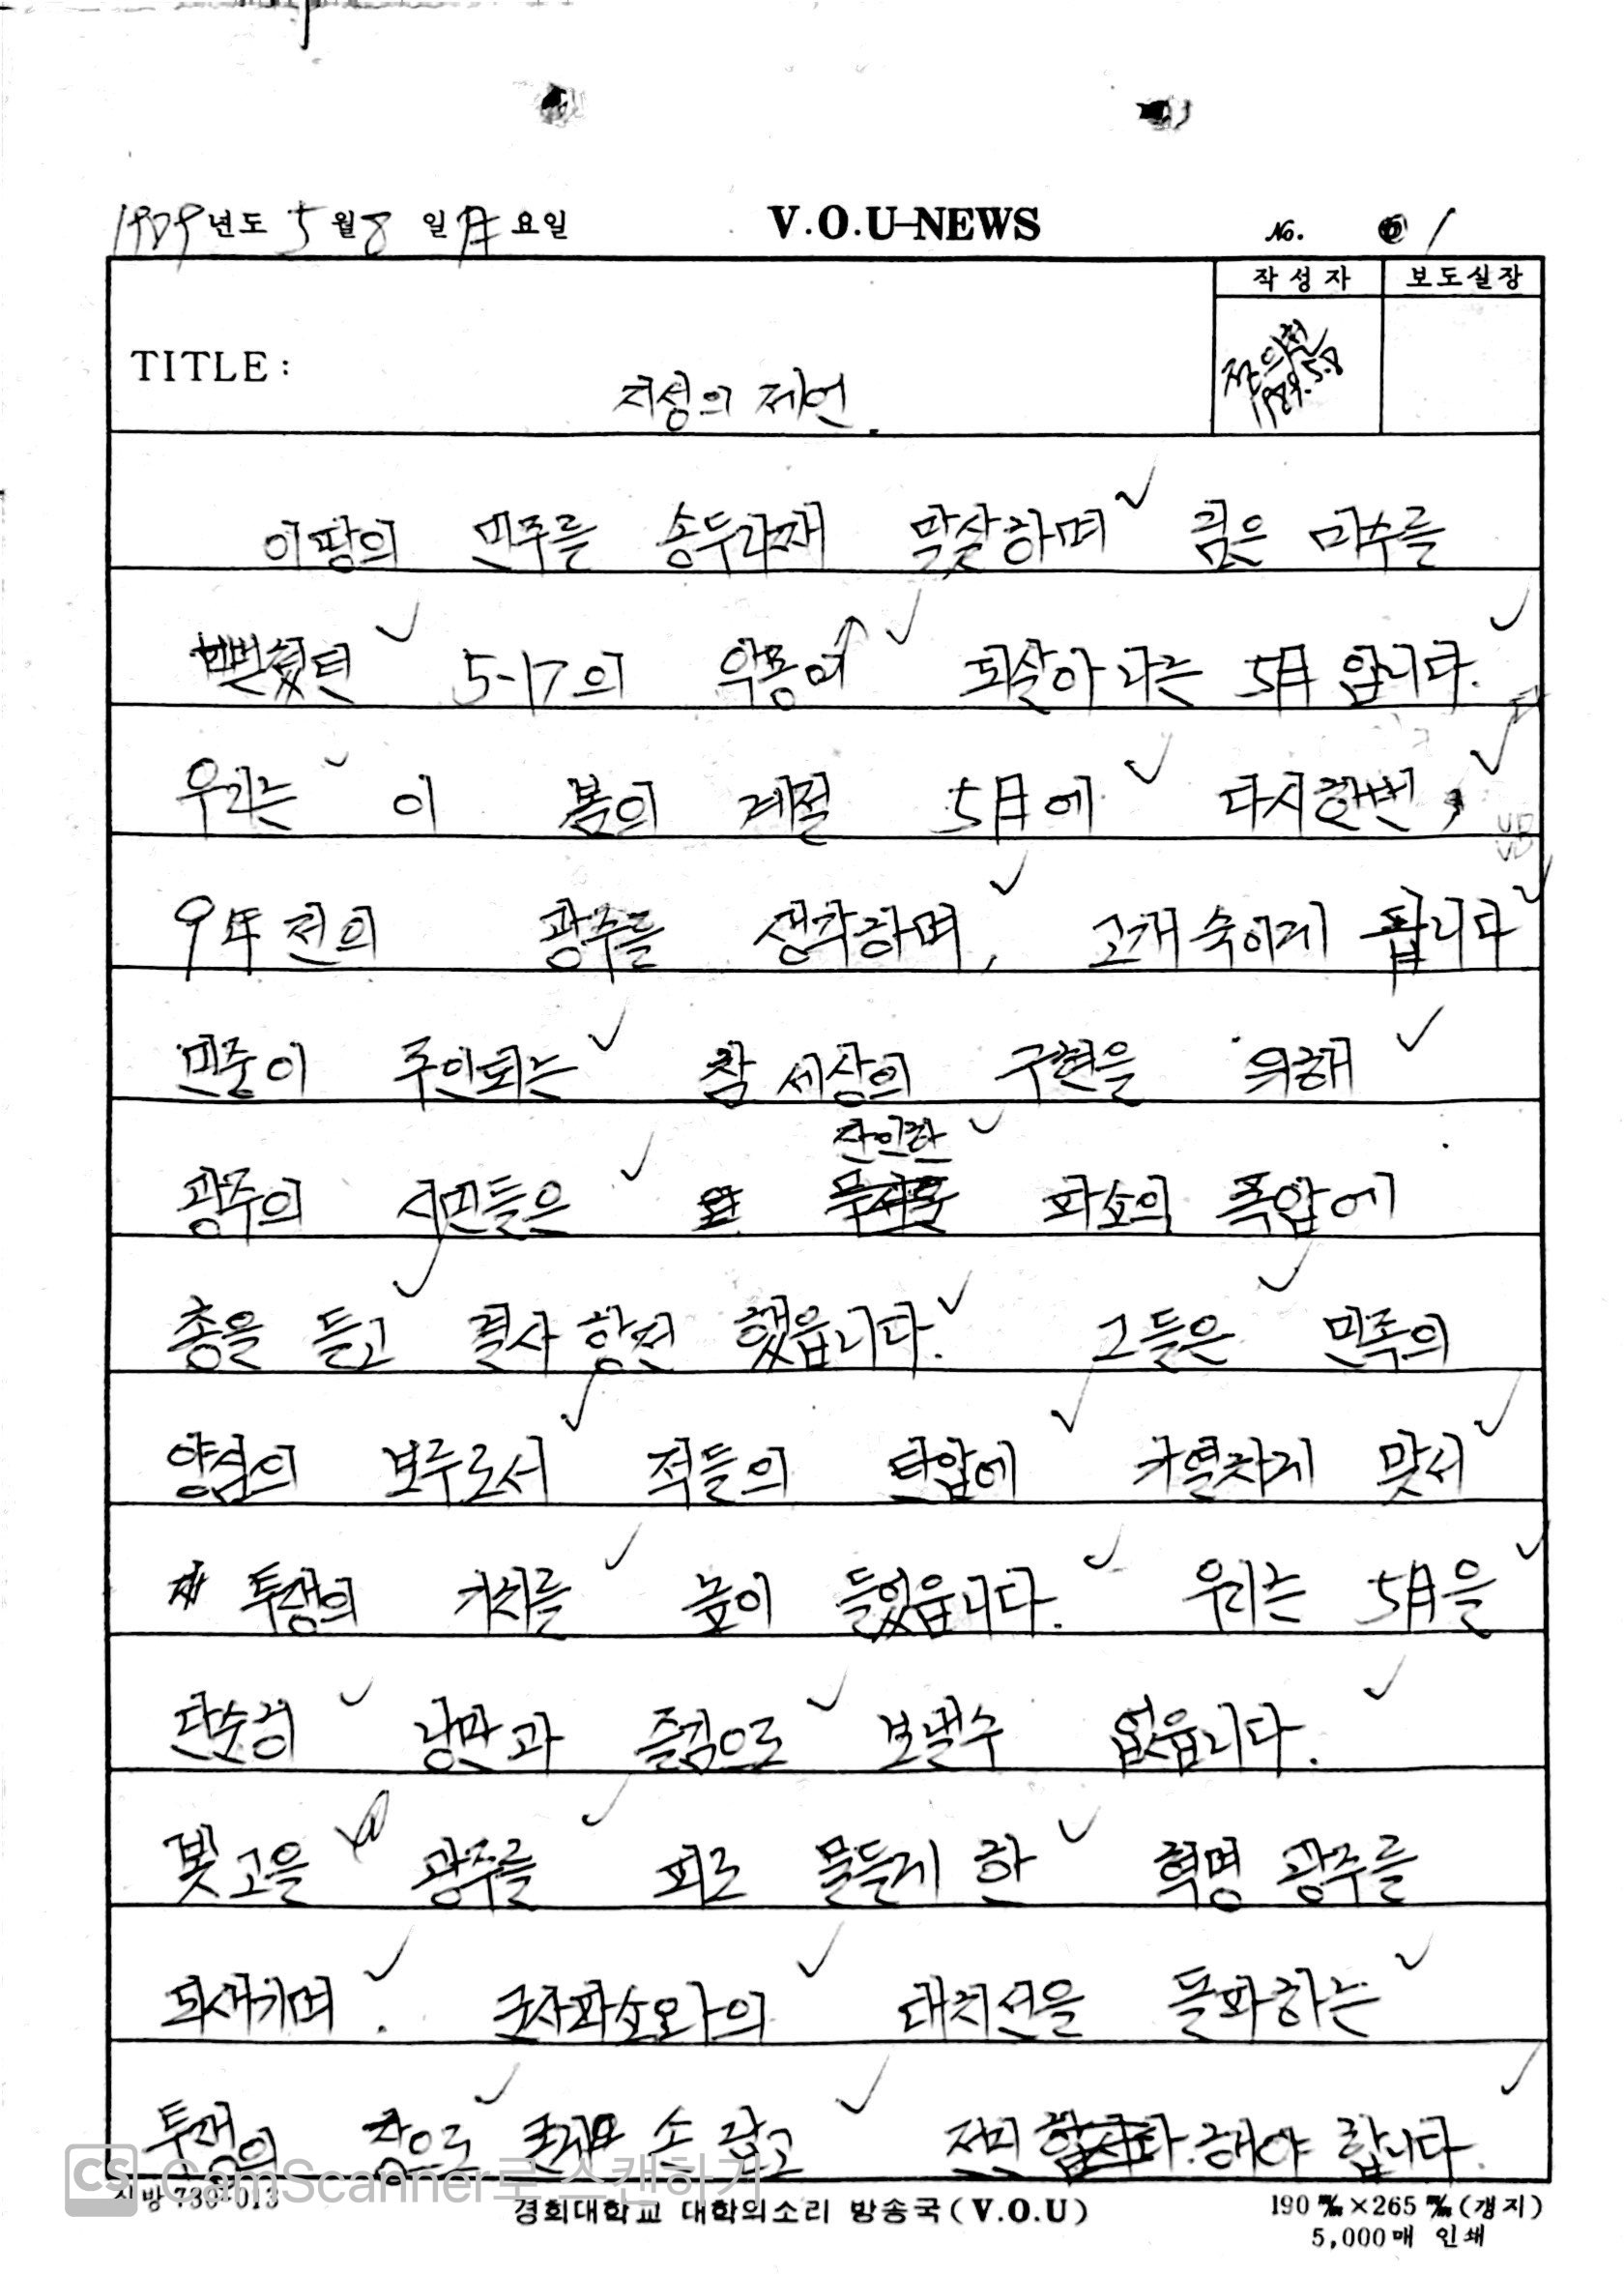 1989년도 5월 8일 月요일 V.O.U-NEWS No. 1
작성자 보도실장
TITLE: 지성의 제언
1989.5.8
이땅의 민주를 송두리째 말살하며 검은 마수를
뻗쳤던 5-17의 악몽이 되살아나는 5月 입니다.
우리는 이 봄의 계절 5月에 다시한번,
9年전의 광주를 생각하며, 고개숙이게 됩니다
민중이 주인되는 참 세상의 구현을 위해
광주의 시민들은 잔인한 파쇼의 폭압에
총을 들고 결사 항전 했읍니다. 그들은 민족의
양심의 보루로서 적들의 탄압에 가열차게 맞서
투쟁의 기치를 높이 들었읍니다. 우리는 5月을
단순히 낭만과 즐김으로 보낼수 없읍니다.
빛고을 광주를 피로 물들게 한 혁명 광주를
되새기며. 군사파쇼와의 대치선을 돌파하는
투쟁의 장으로 손 잡고 전진 해야 합니다.
CS CamScanner로 스캔하기
경희대학교 대학의소리 방송국(V.O.U)
190㎜×265㎜(갱지)
5,000매 인쇄